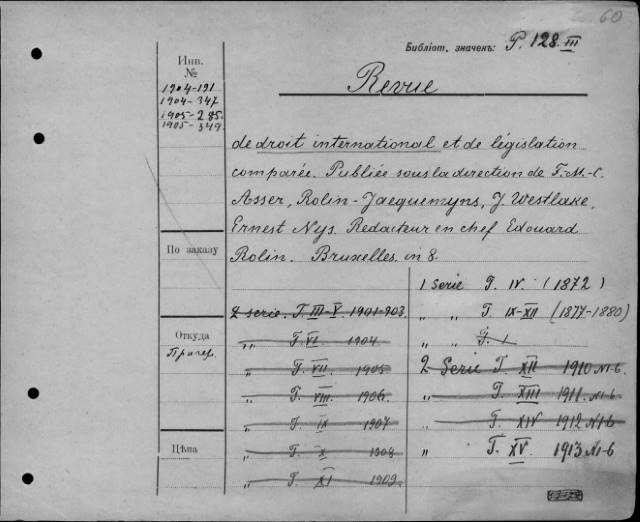 60
Библіот. значекъ: P. 128 III
Инв.
№
1904-191
1904-347
1905-285
1905-349
Revue
de droit international et de législation
comparée. Publiée sous la direction de T.-M.-C.
Asser, Rolin-Jaequemyns, J. Westlake,
Ernest Nys. Redacteur en chef Edouard
Rolin. Bruxelles. in 8.
По заказу
Откуда
Прагер.
Цѣна
2 serie. T. III-V. 1901-903.
„ T. VI. 1904
„ T. VII. 1905
„ T. VIII. 1906
„ T. IX 1907
„ T. X 1908
„ T. XI 1909
1 Serie T. IV. (1872)
„ „ T. IX-XII (1877-1880)
„ „ T. I
2 Serie T. XII 1910 N1-6
„ T. XIII 1911. N1-6
„ T. XIV 1912 N1-6
„ T. XV. 1913 N1-6